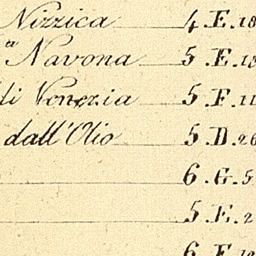 Nizzica 4.E.18
a Navona 5.E.18
di Venezia 5.F.11
dall'Olio 5.D.26
6.G.5
5.E.2